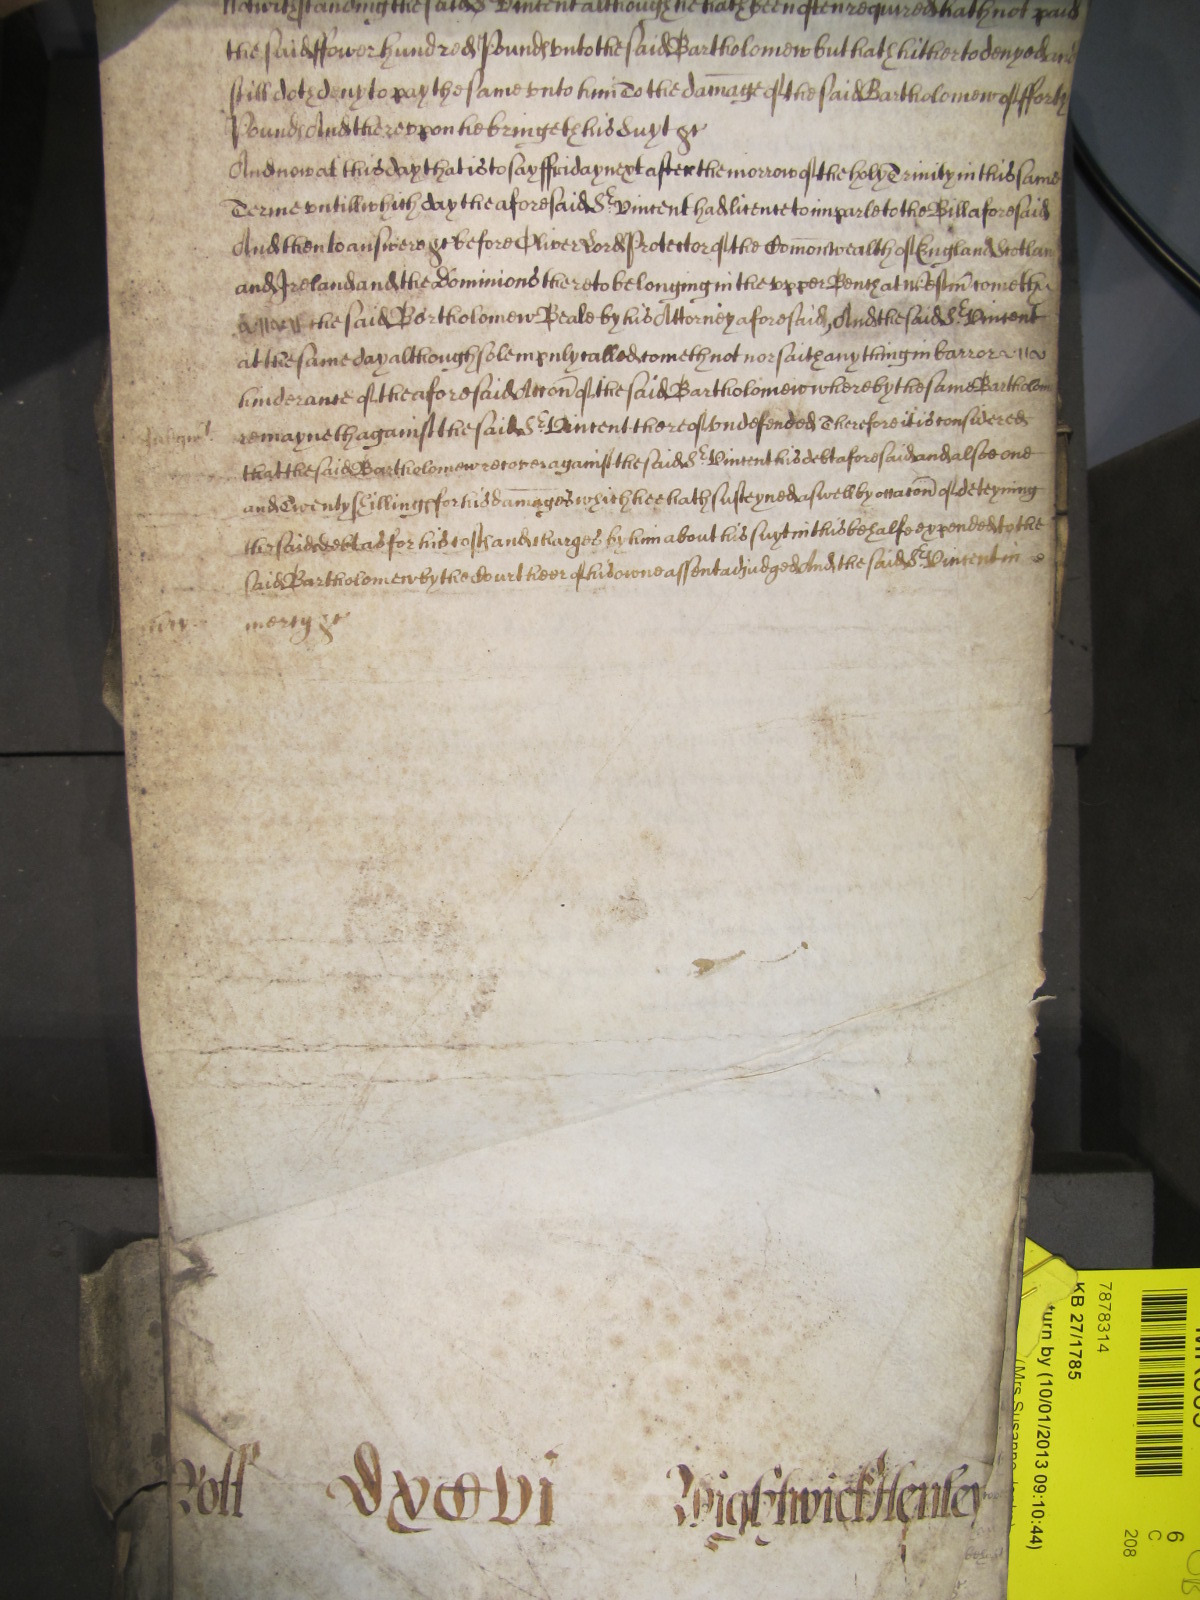 Notwithstanding the said Sr Vincent although he hath been often required hath not paid
the said ffower hundred Pounds vnto the said Bartholomew but hath hitherto denyed and
still doth deny to pay the same vnto him To the damage of the said Bartholomew of fforty
Pounds And therevpon he bringeth his Suyt &c
And now at this day that is to say ffriday next after the morrow of the holy Trinity in this same
Terme vntill which day the aforesaid Sr Vincent had licence to imparle to the Bill aforesaid
And then to answere &c before Oliver Lord Protector of the Comonwealth of England Scotlan
and Ireland and the Dominions thereto belonging in the vpper Bench at Westm cometh
the said Bartholomew Beale by his Attorney aforesaid, And the said Sr Vincent
at the same day although solempnly called cometh not nor saith any thing in barr or
hinderance of the aforesaid Accon of the said Bartholomew whereby the same Bartholom
remayneth against the said Sr Vincent thereof vndefended Therefore it is considered
that the said Bartholomew recover against the said Sr Vincent his debt aforesaid and alsoe one
and Twenty shillings for his damages which hee hath susteyned aswell by occacon of deteyning
the said debt as for his costs and charges by him about his suyt in this behalfe expended to the
said Bartholomew by the Court heer of his owne assent adjudged And the said Sr Vincent in
mercy &c
Roll DXCVI Wightwick Henley
KB 27/1785
7878314
turn by (10/01/2013 09:10:44)
6
C
208